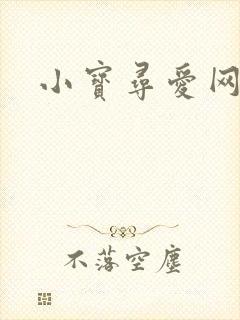 小寳尋愛网
不落空塵